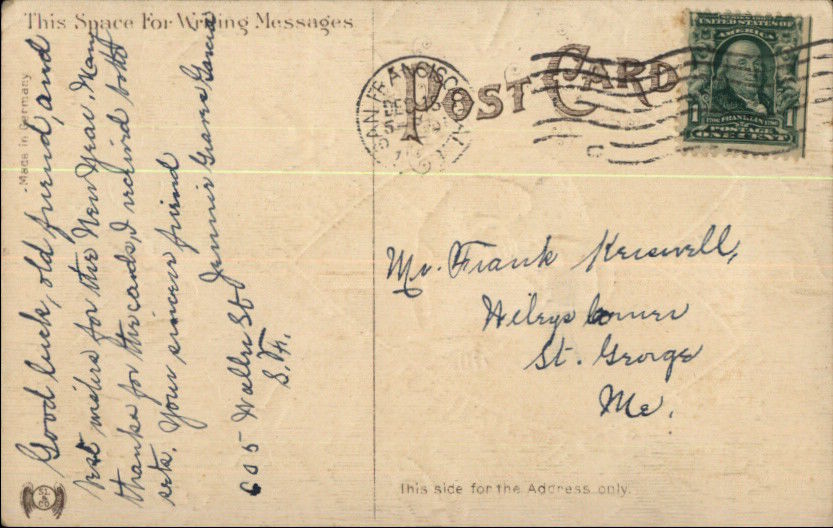 This Space For Writing Messages
Good luck, old friend, and
best wishes for the New Year. Many
thanks for the cards, I received both
sets. Your sincere friend
Jennie
605 Waller St
S.F.
Made in Germany
POST CARD
SAN FRANCISCO
CAL
SERIES 1902
UNITED STATES OF
AMERICA
1 FRANKLIN 1
POSTAGE
ONE CENT
Mr. Frank
Wileys Corner
St. George
Me.
This side for the Address only.